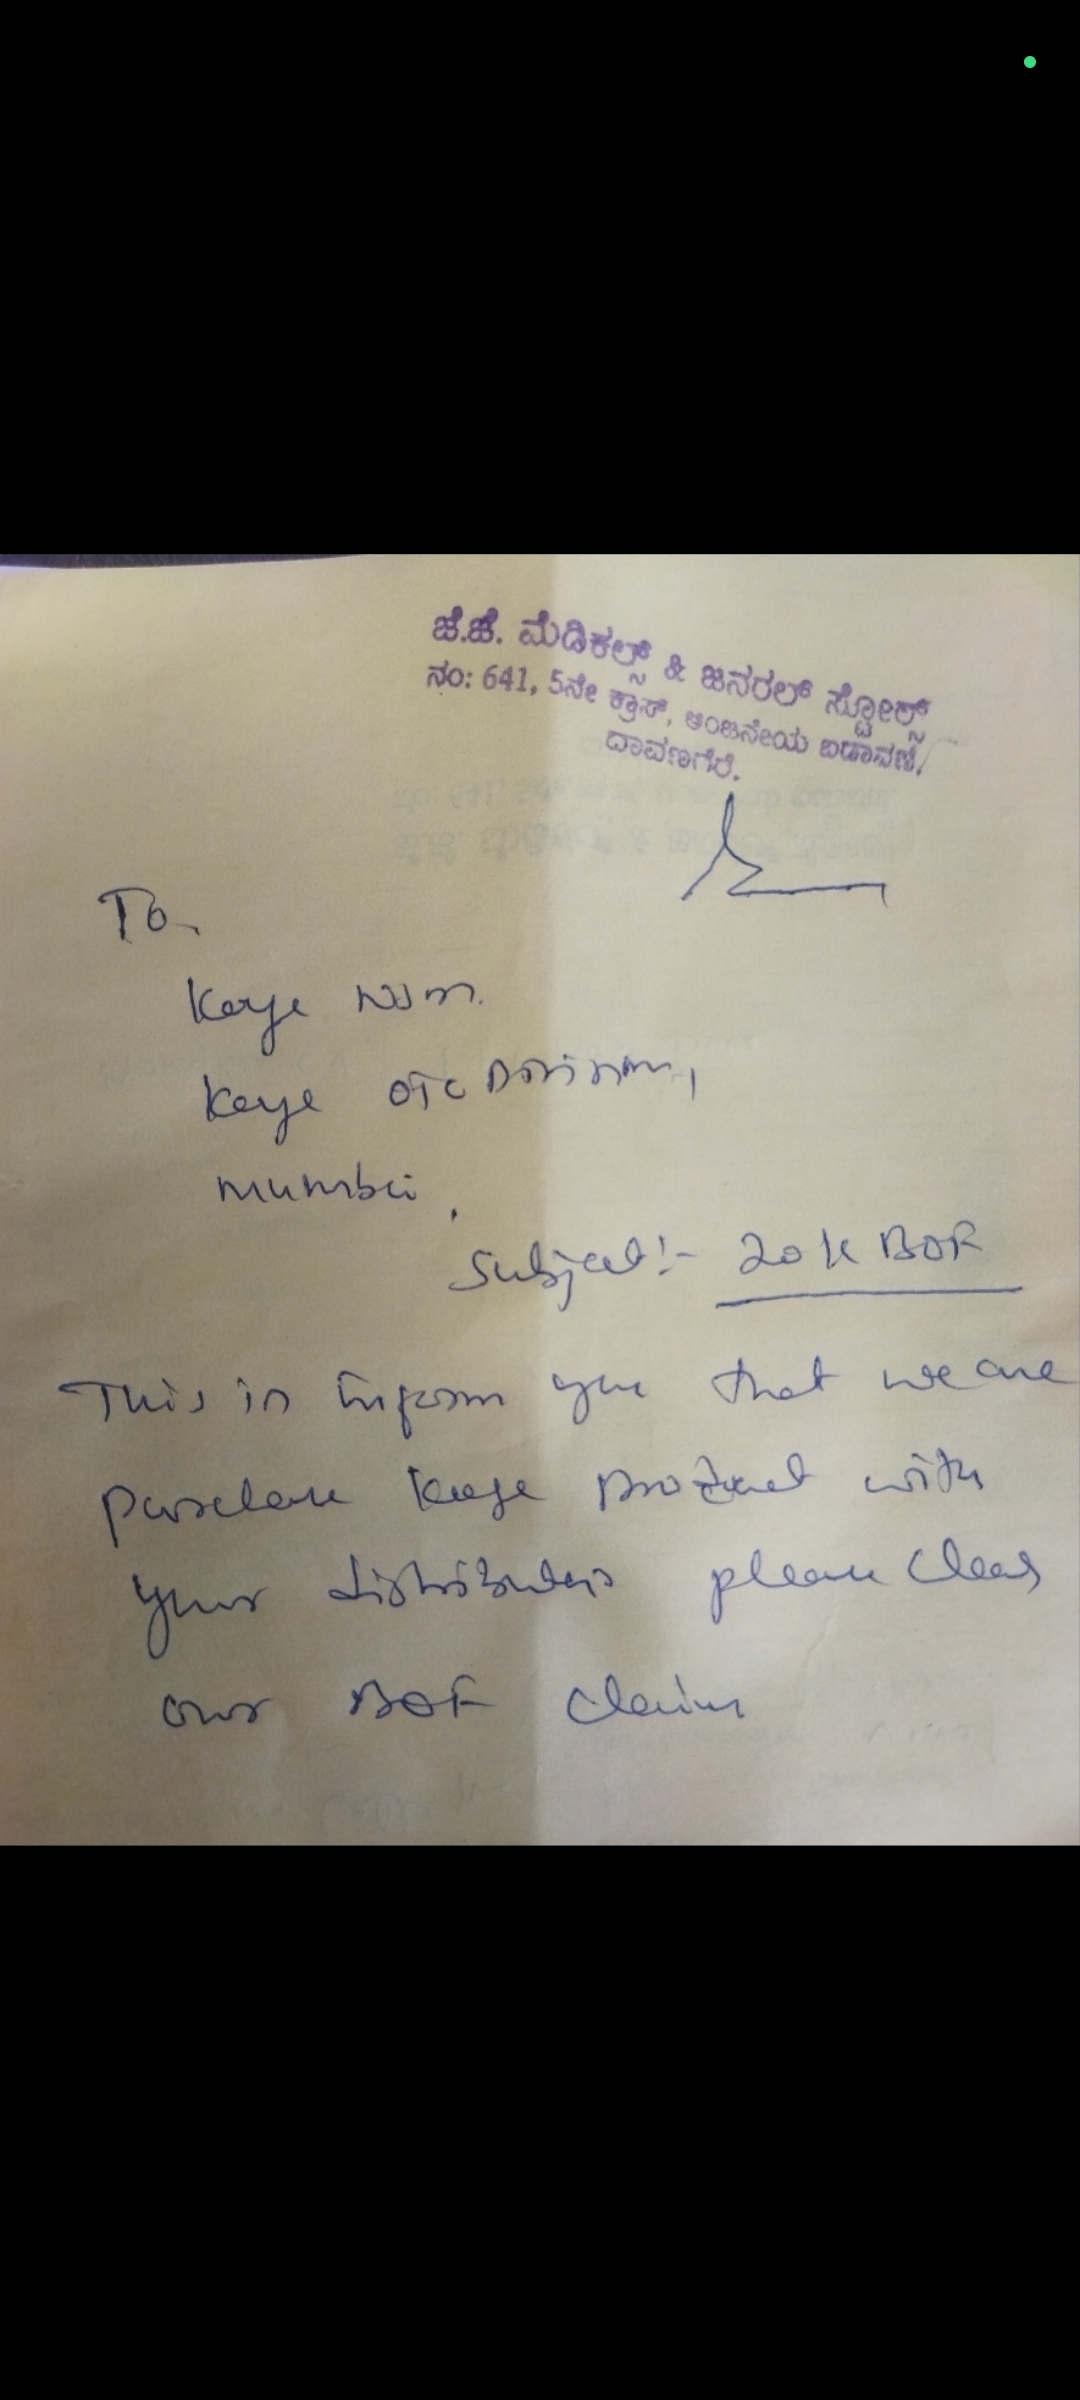 ಜೆ.ಜೆ. ಮೆಡಿಕಲ್ಸ್ & ಜನರಲ್ ಸ್ಟೋರ್ಸ್
ನಂ: 641, 5ನೇ ಕ್ರಾಸ್, ಆಂಜನೇಯ ಬಡಾವಣೆ,
ದಾವಣಗೆರೆ.
To,
Kaye
Kaye OTC
Mumbai,
Subject:- 20K BOF
This is inform you that we are
Kaye with
your distributers please clear
our BOF claim